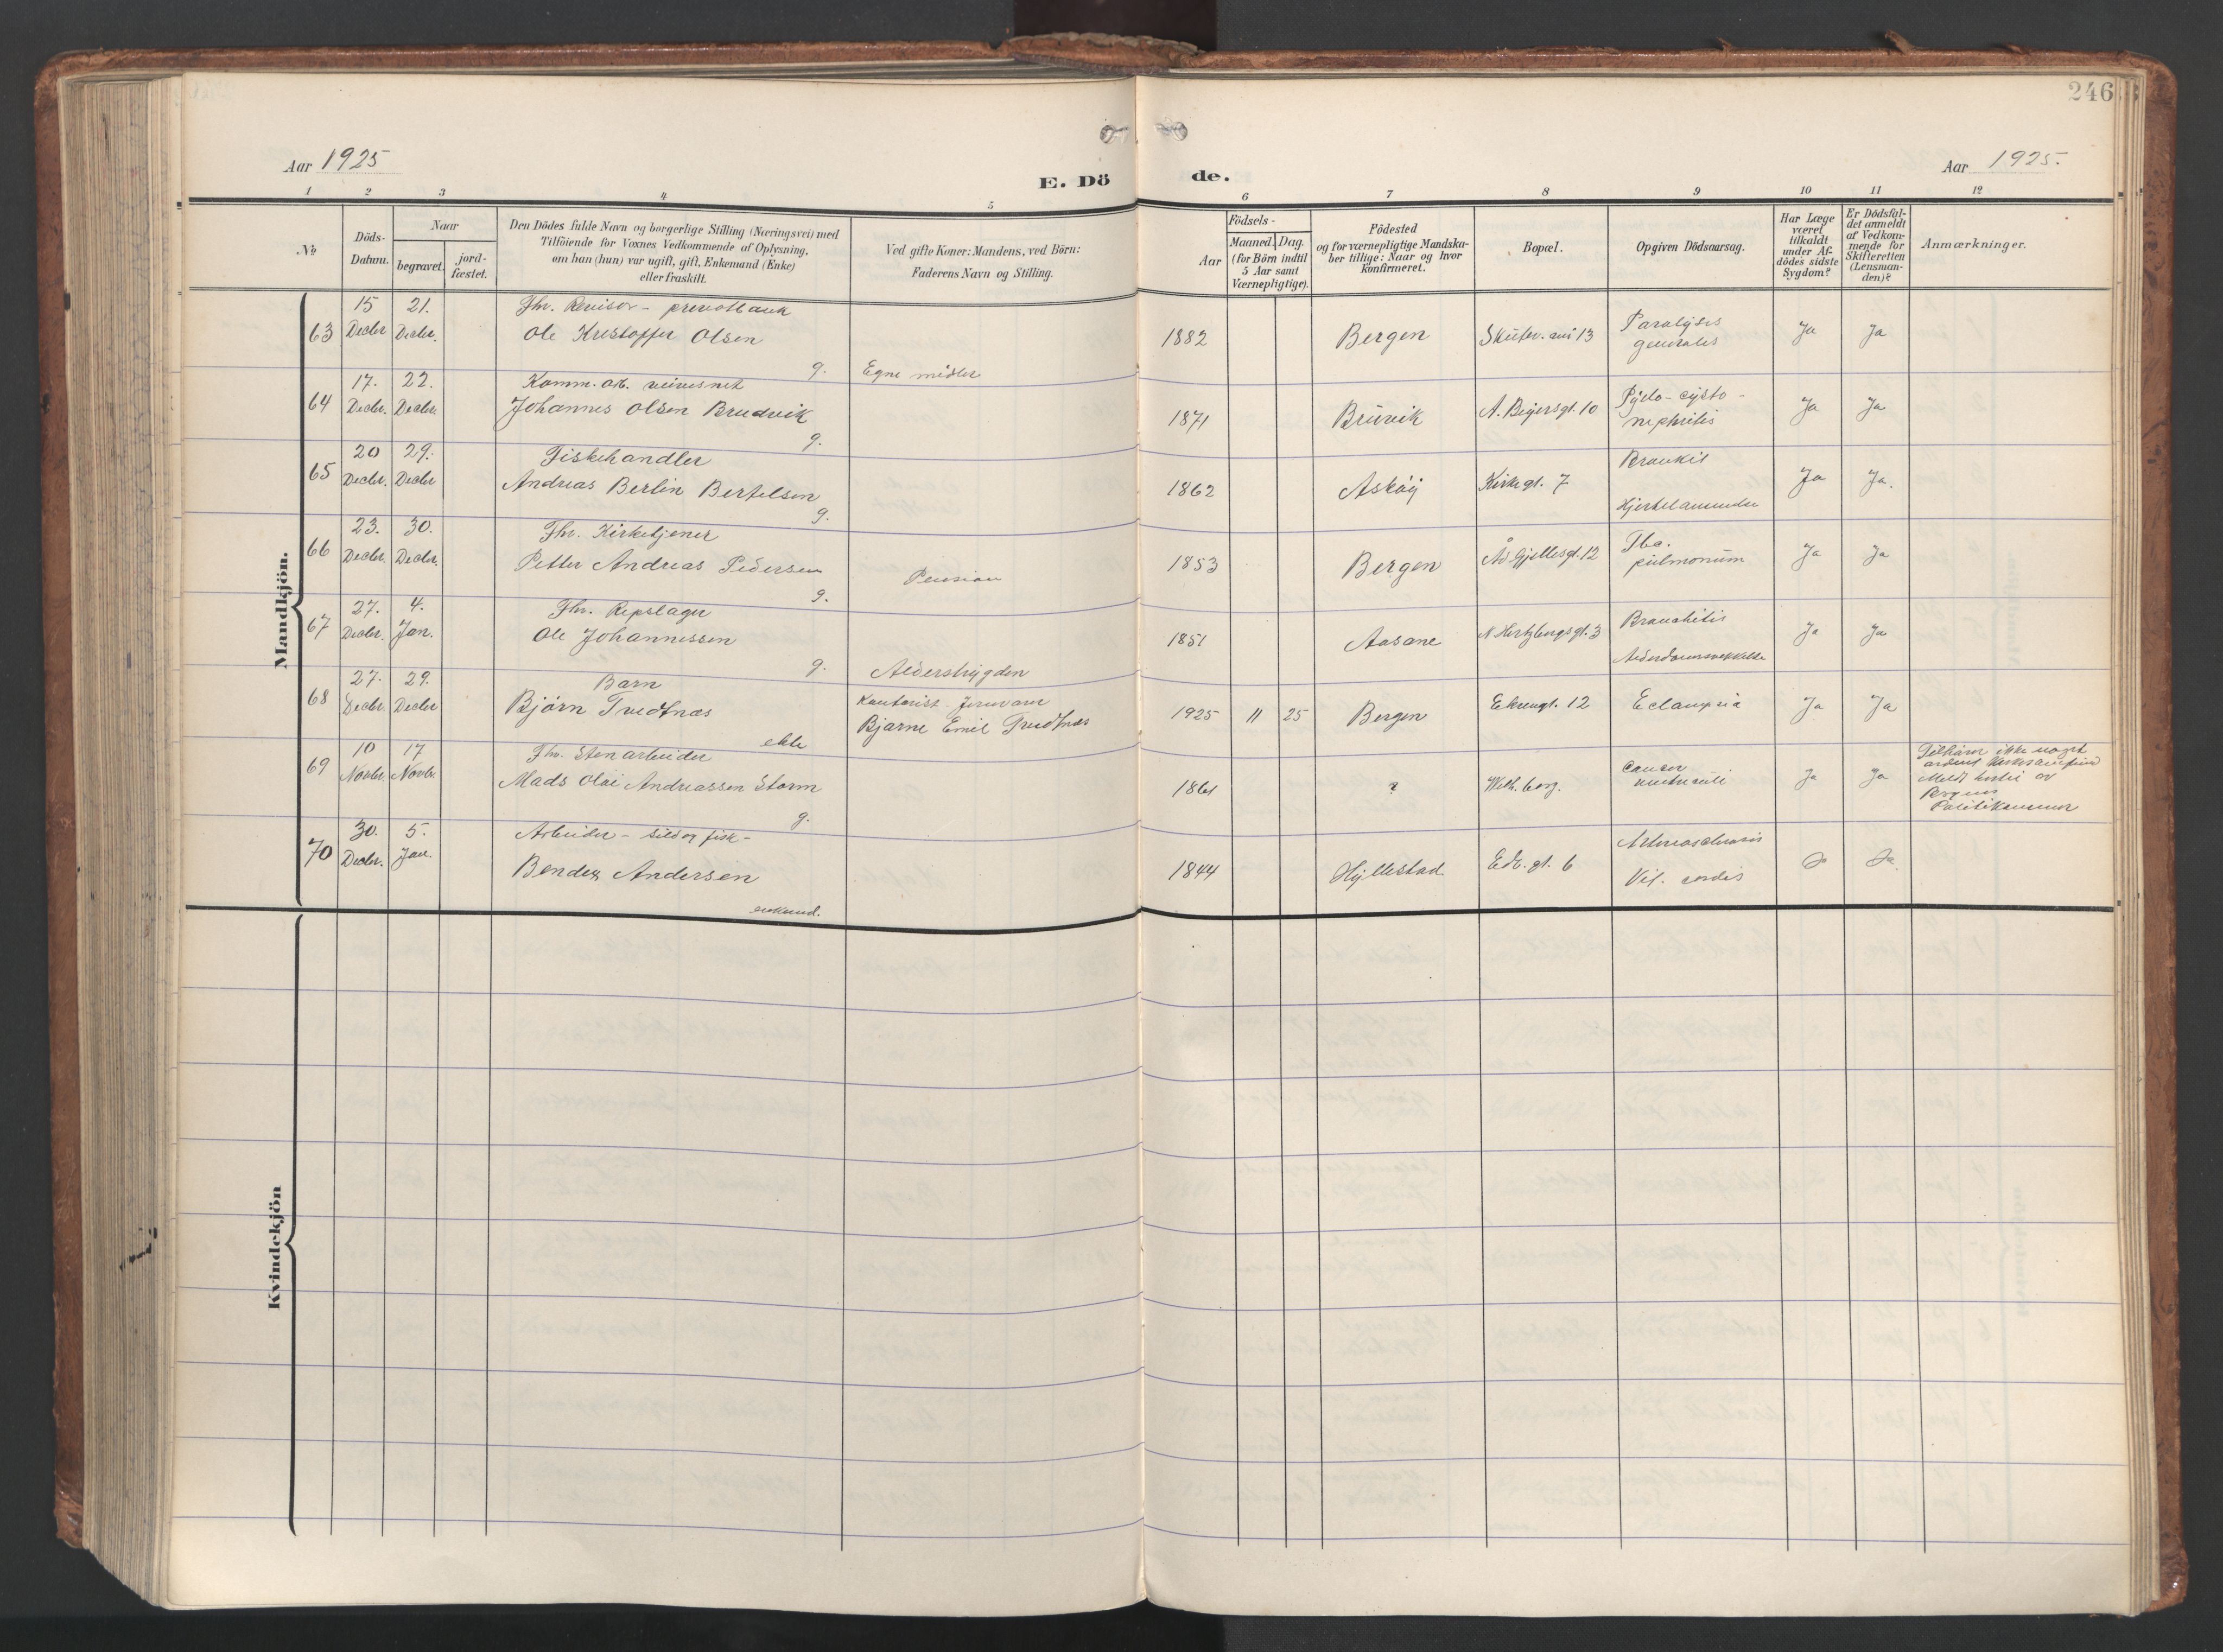 246
Aar 1925
E. Dö de.
Aar 1925.
1 2 3 4 5 6 7 8 9 10 11 12
No
Döds-
Datum.
Naar
begravet.
jord-
fæstet.
Den Dödes fulde Navn og borgerlige Stilling (Næringsvei) med
Tilföiende for Voxnes Vedkommende af Oplysning,
om han (hun) var ugift, gift, Enkemand (Enke)
eller fraskilt.
Ved gifte Koner: Mandens, ved Börn:
Faderens Navn og Stilling.
Födsels-
Aar
Maaned. Dag.
(for Börn indtil
5 Aar samt
Værnepligtige).
Födested
og for værnepligtige Mandska-
ber tillige: Naar og hvor
konfirmeret.
Bopæl.
Opgiven Dödsaarsag.
Har Læge
været
tilkaldt
under Af-
dödes sidste
Sygdom?
Er Dödsfal-
det anmeldt
af Vedkom-
mende for
Skifteretten
(Lensman-
den)?
Anmærkninger.
Mandkjön.
63 15 Decbr 21. Decbr.
Fhv. Revisor - privatbank
Ole Kristoffer Olsen
g. Egne midler
1882 Bergen 13
Paralysis
generalis
Ja Ja
64 17. Decbr. 22. Decbr.
Komm. arb.
Johannes Olsen Brudvik
g.
1871 Bruvik A. Beyersgt. 10
Pyelo-cysto-
nephritis
Ja Ja
65 20 Decbr. 29. Decbr
Fiskehandler
Andreas Berlin Bertelsen
g.
1862 Askøy Kirkegt. 7
Bronkit
Hjertelammelse
Ja Ja.
66 23. Decbr. 30. Decbr.
Fhv. Kirketjener
Petter Andreas Pedersen
g. Pension
1853 Bergen Ad Gjellesgt. 12
Tbc.
pulmonum
Ja Ja
67 27. Decbr. 4. Jan.
Fhv. Repslager
Ole Johannessen
g. Alderstrygden
1851 Aasane N Hertzbergsgt. 3
Bronchitis
Alderdomssvekkelse
Ja Ja
68 27. Decbr 29. Decbr
Barn
Bjørn Tvedtnæs
ekte
Kontorist Jernvarer
Bjarne Emil Tvedtnæs
1925 11 25 Bergen Ekrengt. 12 Eclampsia Ja Ja
69 10 Novbr. 17 Novbr.
Fhv. Stenarbeider
Mads Olai Andreassen Storm
g.
1861 ?
Cancer
ventriculi
Ja Ja
Tilhører ikke noget
Meldt hertil av
Bergens
Politikammer
70 30. Decbr. 5. Jan.
Arbeider - sild og fisk -
Bendix Andersen
enkemd.
1844 Hyllestad gt. 6
Arteriosclerosis
Vit. cordis
Ja Ja
Kvindekjön